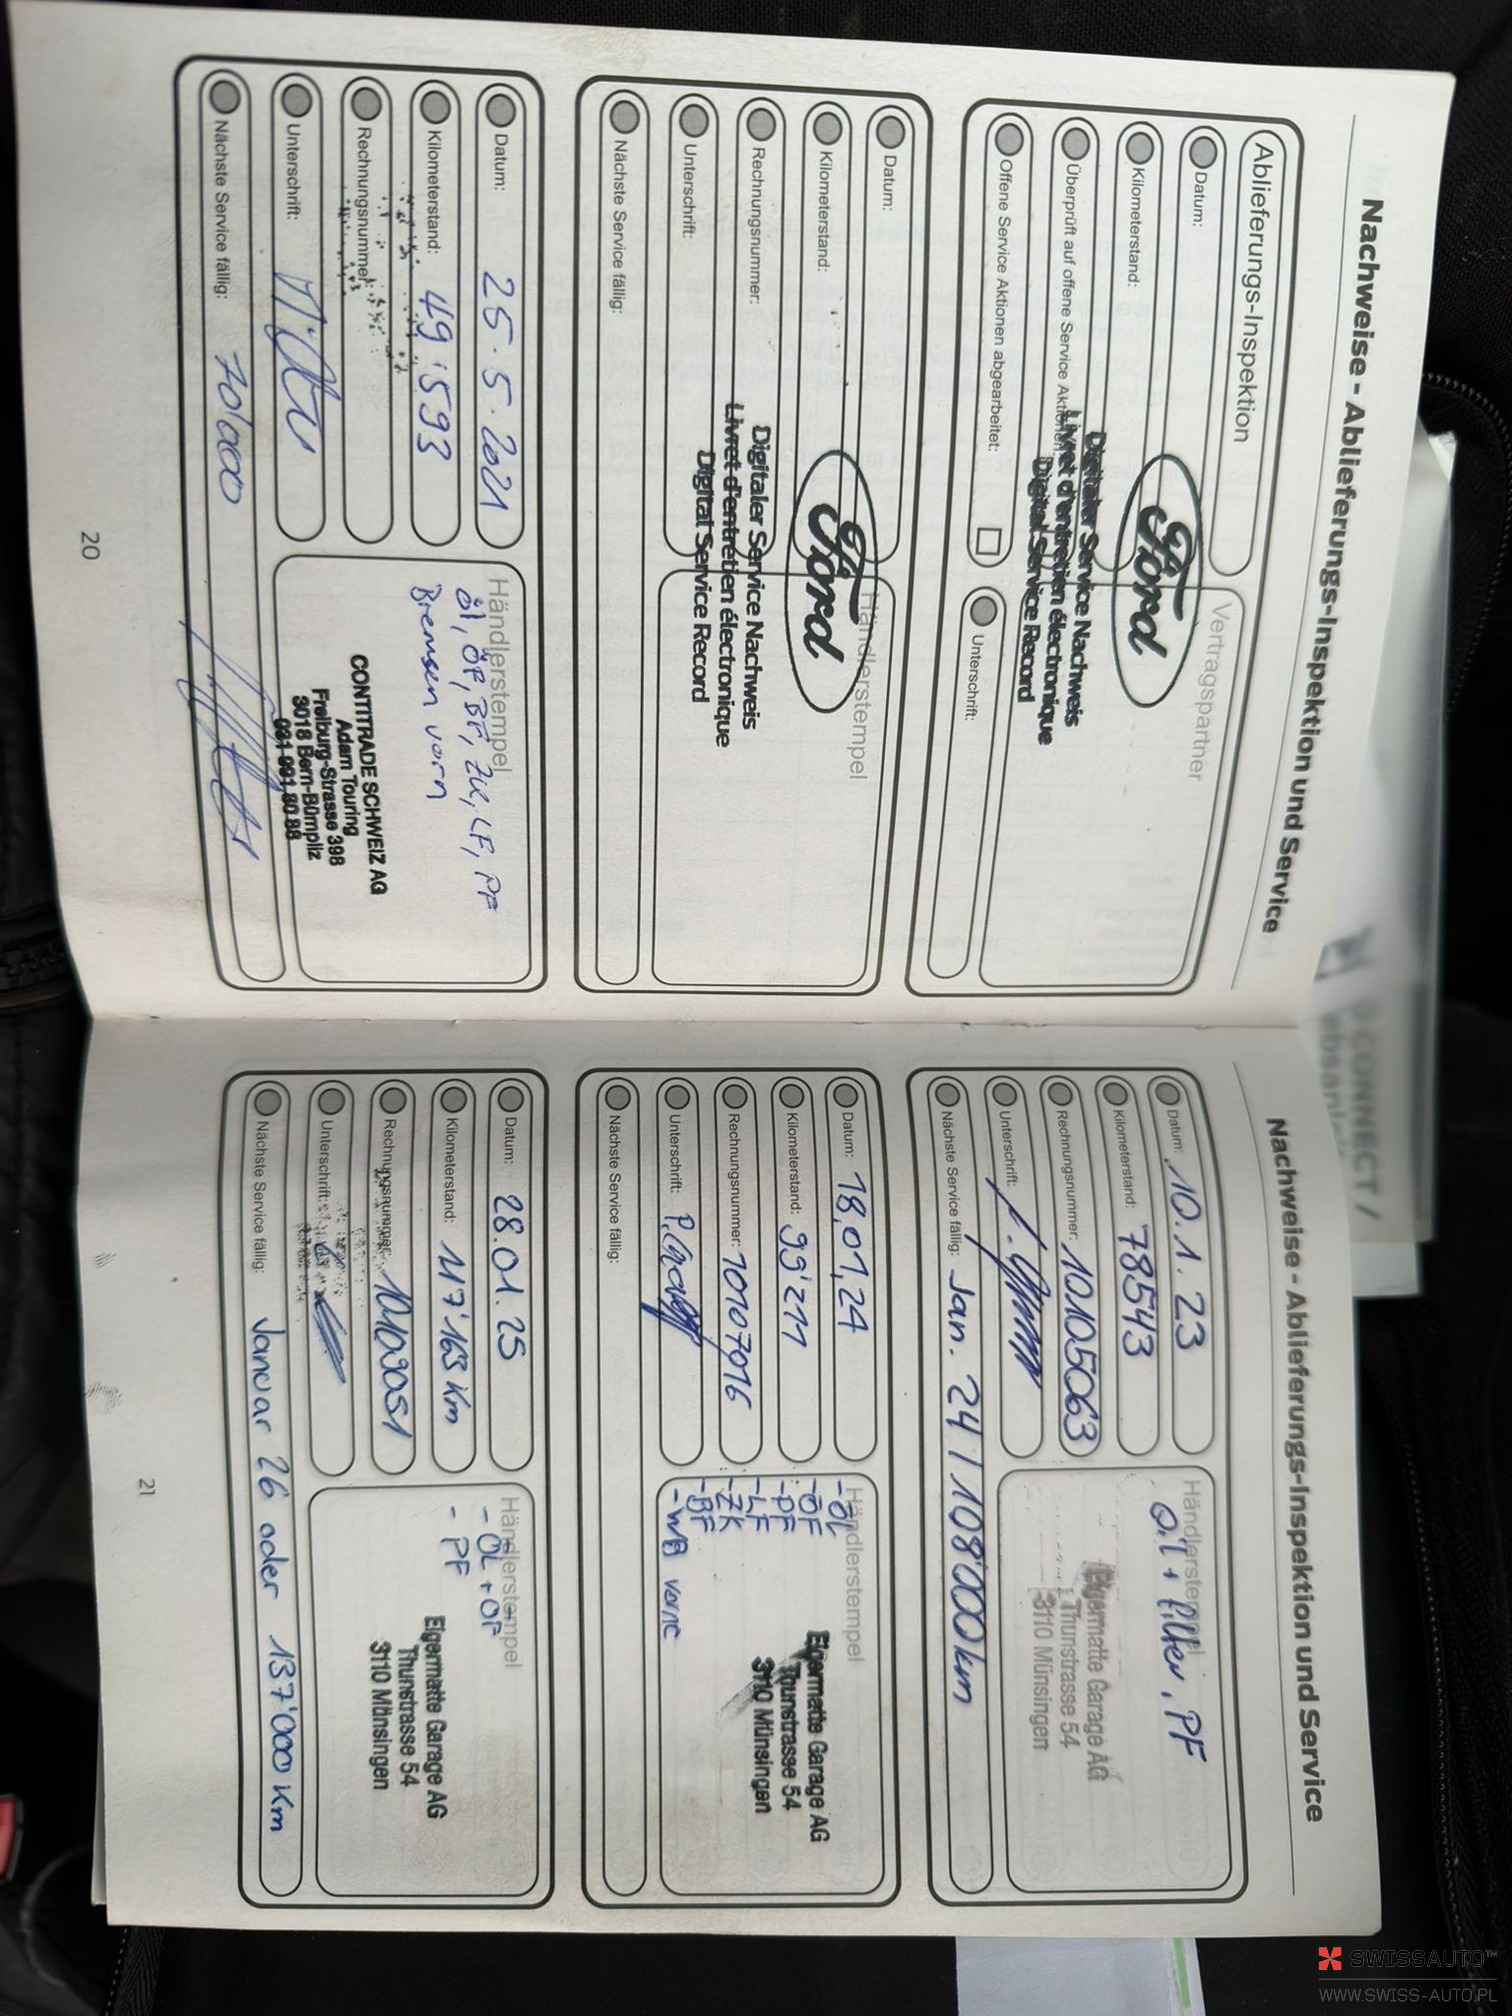 Nachweise - Ablieferungs-Inspektion und Service
Ablieferungs-Inspektion
Datum:
Kilometerstand:
Überprüft auf offene Service Aktionen:
Offene Service Aktionen abgearbeitet:
Vertragspartner
Unterschrift:
Ford
Digitaler Service Nachweis
Livret d'entretien électronique
Digital Service Record
Datum:
Kilometerstand:
Rechnungsnummer:
Unterschrift:
Nächste Service fällig:
Händlerstempel
Ford
Digitaler Service Nachweis
Livret d'entretien électronique
Digital Service Record
Datum: 25.5.2021
Kilometerstand: 49'593
Rechnungsnummer:
Unterschrift:
Nächste Service fällig: 70'000
Händlerstempel
öl, ÖF, BF, ZK, LF, PF
Bremsen vorn
CONTITRADE SCHWEIZ AG
Adam Touring
Freiburg-Strasse 398
3018 Bern-Bümpliz
031 991 80 88
20
Nachweise - Ablieferungs-Inspektion und Service
Datum: 10.1.23
Kilometerstand: 78543
Rechnungsnummer: 10105063
Unterschrift:
Nächste Service fällig: Jan. 24 / 108'000km
Händlerstempel
Oil + filter, PF
Eigermatte Garage AG
Thunstrasse 54
3110 Münsingen
Datum: 18.01.24
Kilometerstand: 99'211
Rechnungsnummer: 10107016
Unterschrift:
Nächste Service fällig:
Händlerstempel
-ÖL
-ÖF
-PF
-LF
-ZK
-BF
-WB vorne
Eigermatte Garage AG
Thunstrasse 54
3110 Münsingen
Datum: 28.01.25
Kilometerstand: 117'163 Km
Rechnungsnummer: 10109051
Unterschrift:
Nächste Service fällig: Januar 26 oder 137'000 Km
Händlerstempel
- ÖL + ÖF
- PF
Eigermatte Garage AG
Thunstrasse 54
3110 Münsingen
21
CONNECT /
SWISSAUTO™
WWW.SWISS-AUTO.PL